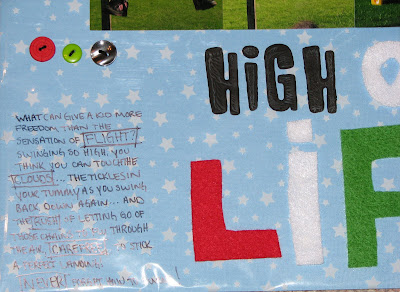 HiGH O
LiF
WHAT CAN GIVE A KID MORE
FREEDOM THAN THE
SENSATION OF FLIGHT?
SWINGING SO HIGH, YOU
THINK YOU CAN TOUCH THE
CLOUDS... THE TICKLES IN
YOUR TUMMY AS YOU SWING
BACK DOWN AGAIN... AND
THE OF LETTING GO OF
THOSE CHAINS TO THROUGH
THE AIR, CAREFREE, STICK
A PERFECT LANDING